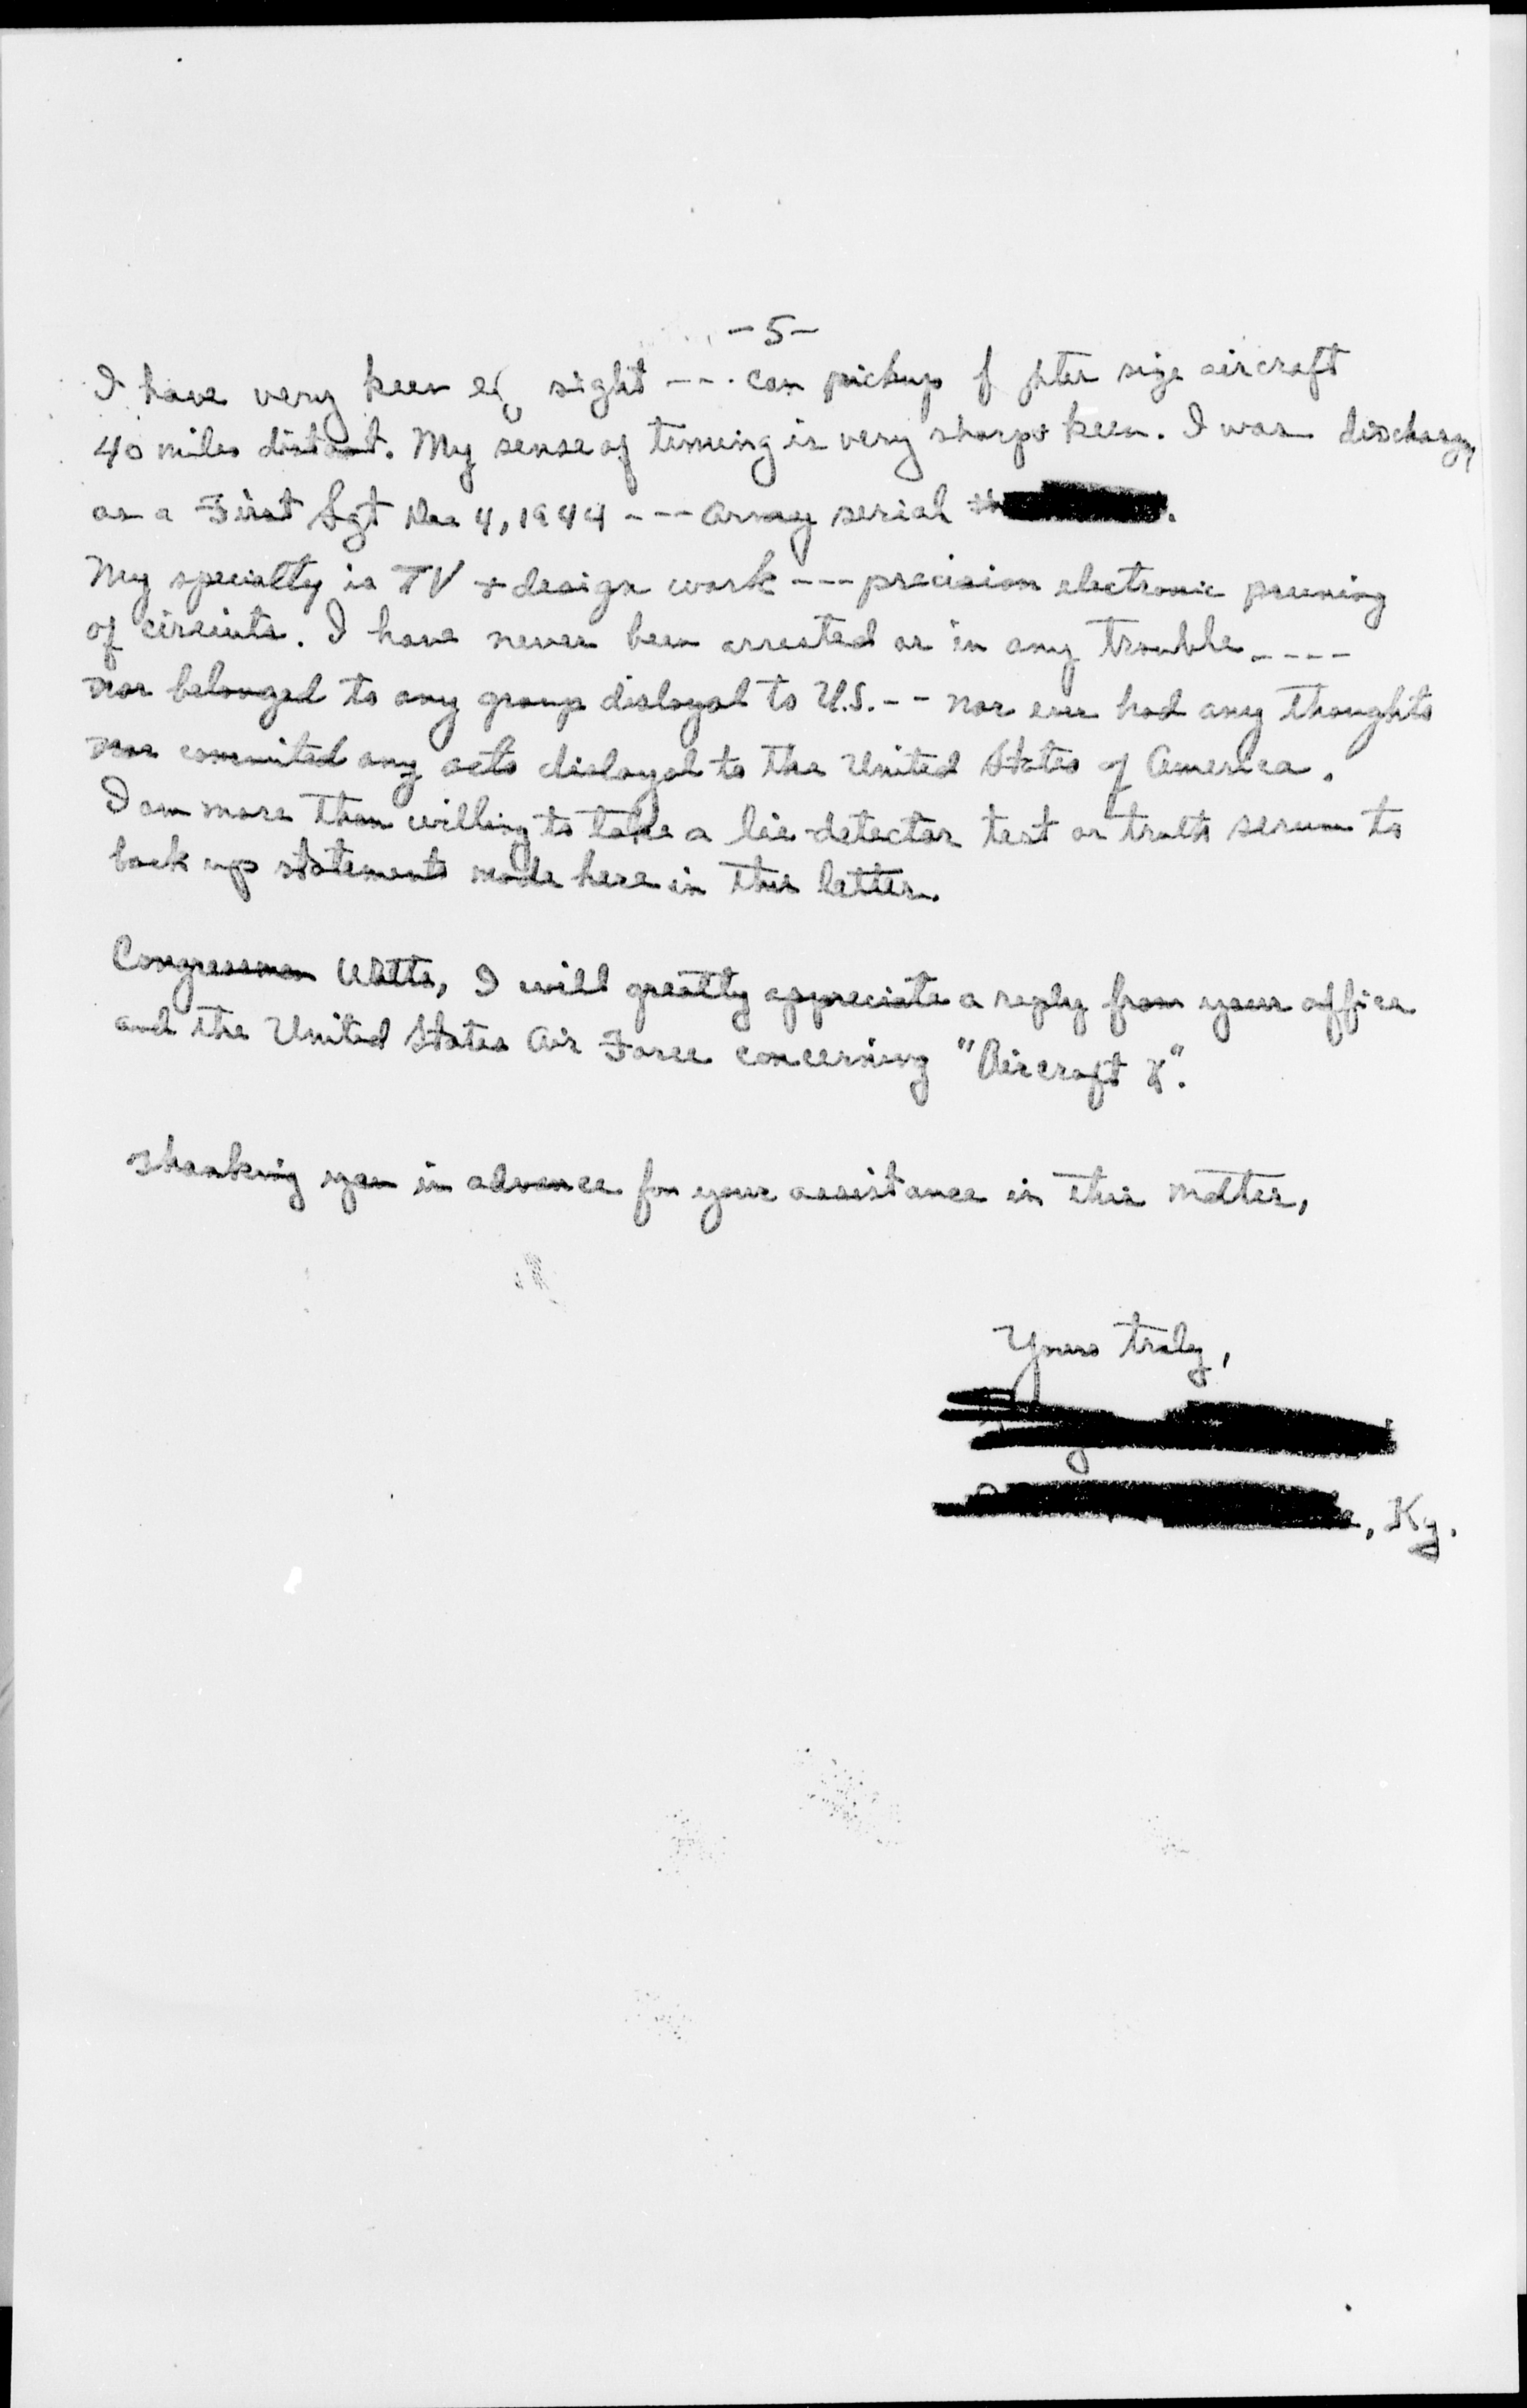 -5-
I have very keen sight --- can pickup size aircraft
40 miles distant. My sense of timing is very sharp + keen. I was
as a First Sgt Dec 4, 1944 --- Army serial #
My specialty is TV + design work --- precision electronic pruning
of circuits. I have never been arrested or in any trouble ----
nor belonged to any group disloyal to U.S. -- nor ever had any thoughts
nor commited any acts disloyal to the United States of America.
I am more than willing to take a lie detector test or truth serum to
back up statements made here in this letter.
Congressman Watts, I will greatly appreciate a reply from your office
and the United States Air Force concerning "Aircraft X".
Thanking you in advance for your assistance in this matter,
Yours truly,
, Ky.